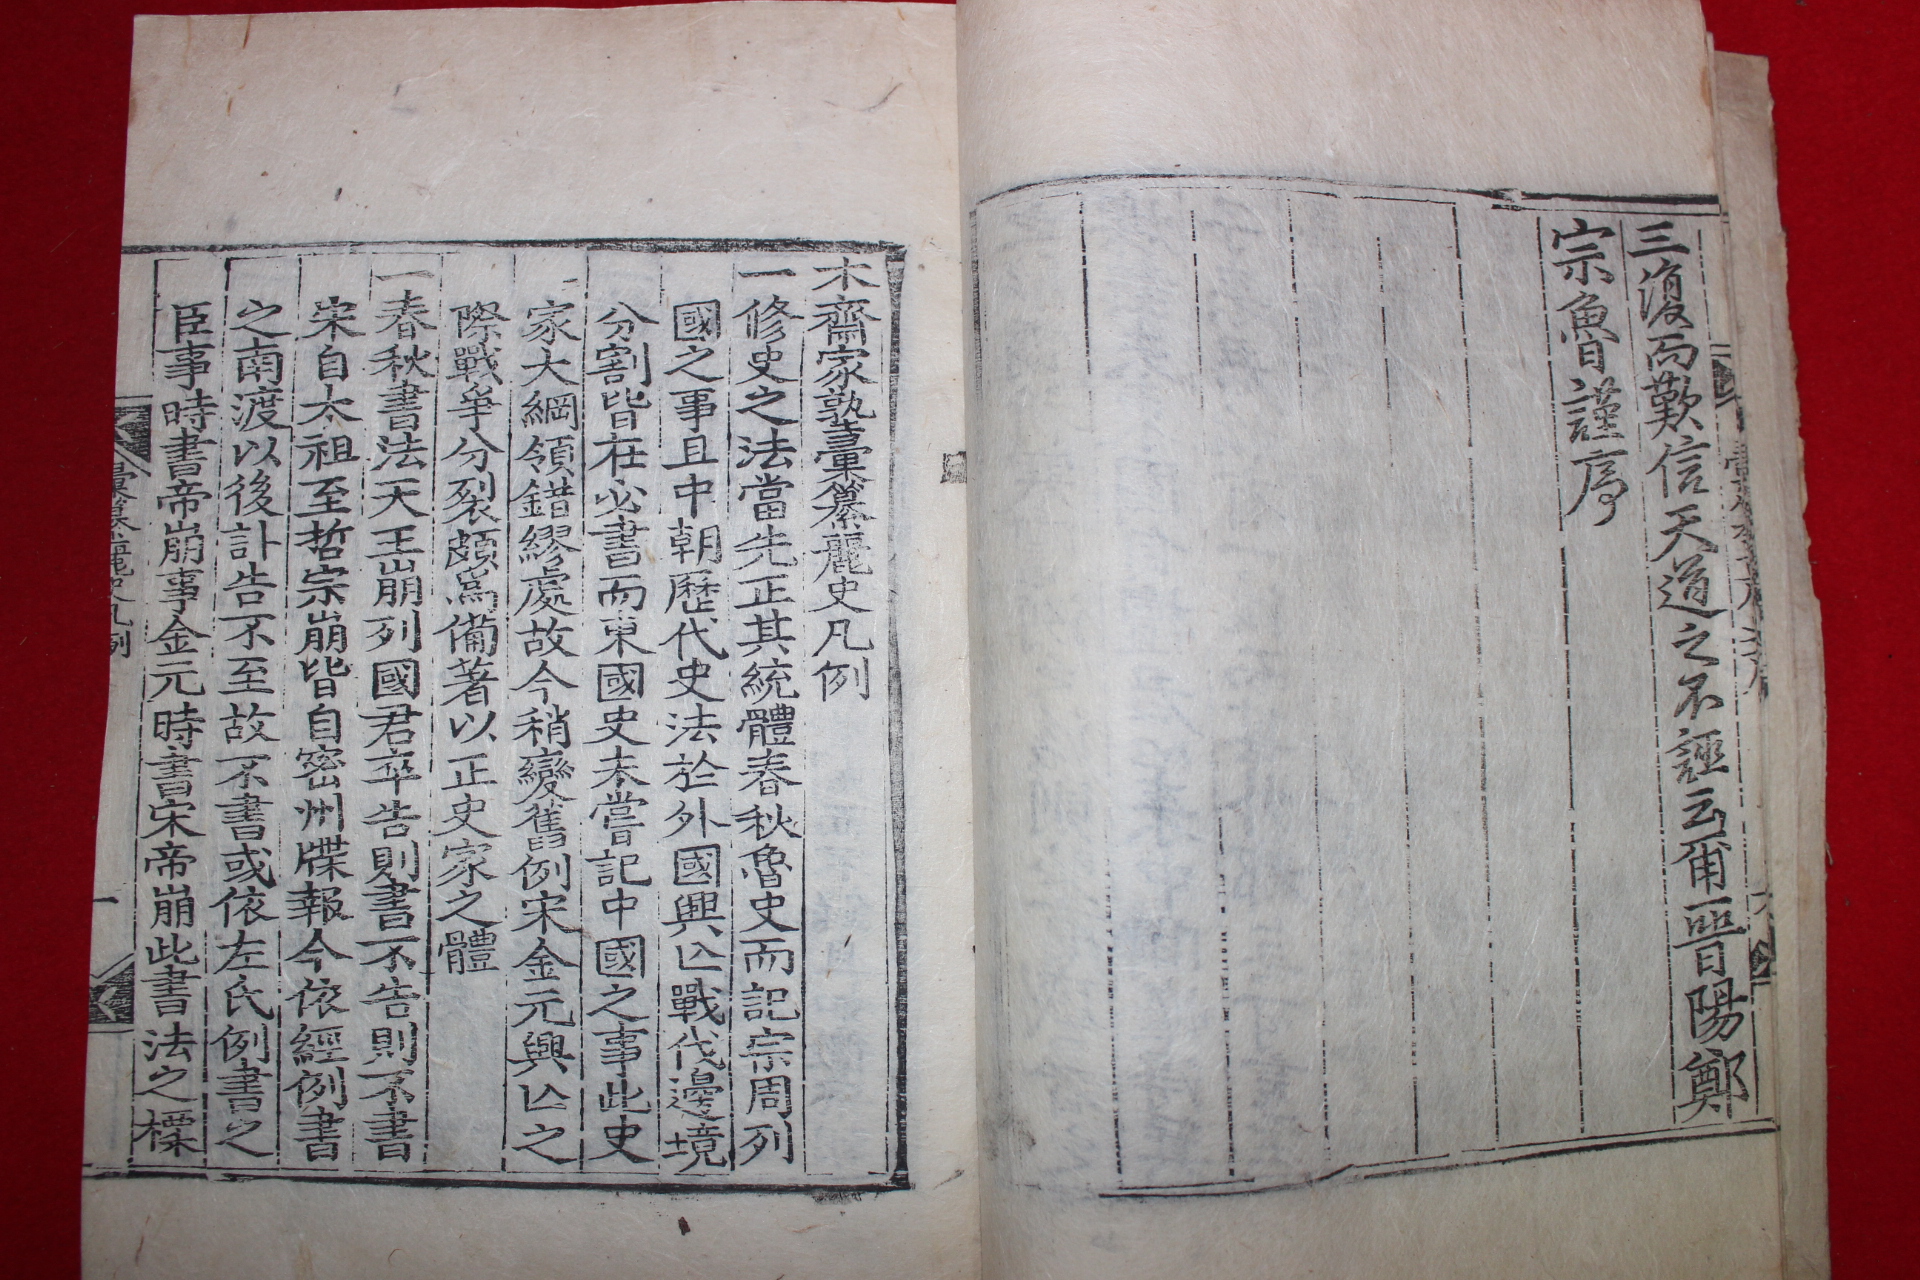 三復而歎信天道之不誣云爾晉陽鄭
宗魯謹序
木齋家塾彙纂麗史凡例
一修史之法當先正其統體春秋魯史而記宗周列
國之事且中朝歷代史法於外國興亾戰伐邊境
分割皆在必書而東國史未嘗記中國之事此史
家大綱領錯繆處故今稍變舊例宋金元興亾之
際戰爭分裂頗爲備著以正史家之體
一春秋書法天王崩列國君卒告則書不告則不書
宋自太祖至哲宗崩皆自密州牒報今依經例書
之南渡以後訃告不至故不書或依左氏例書之
臣事時書帝崩事金元時書宋帝崩此書法之標
彙纂麗史凡例
一